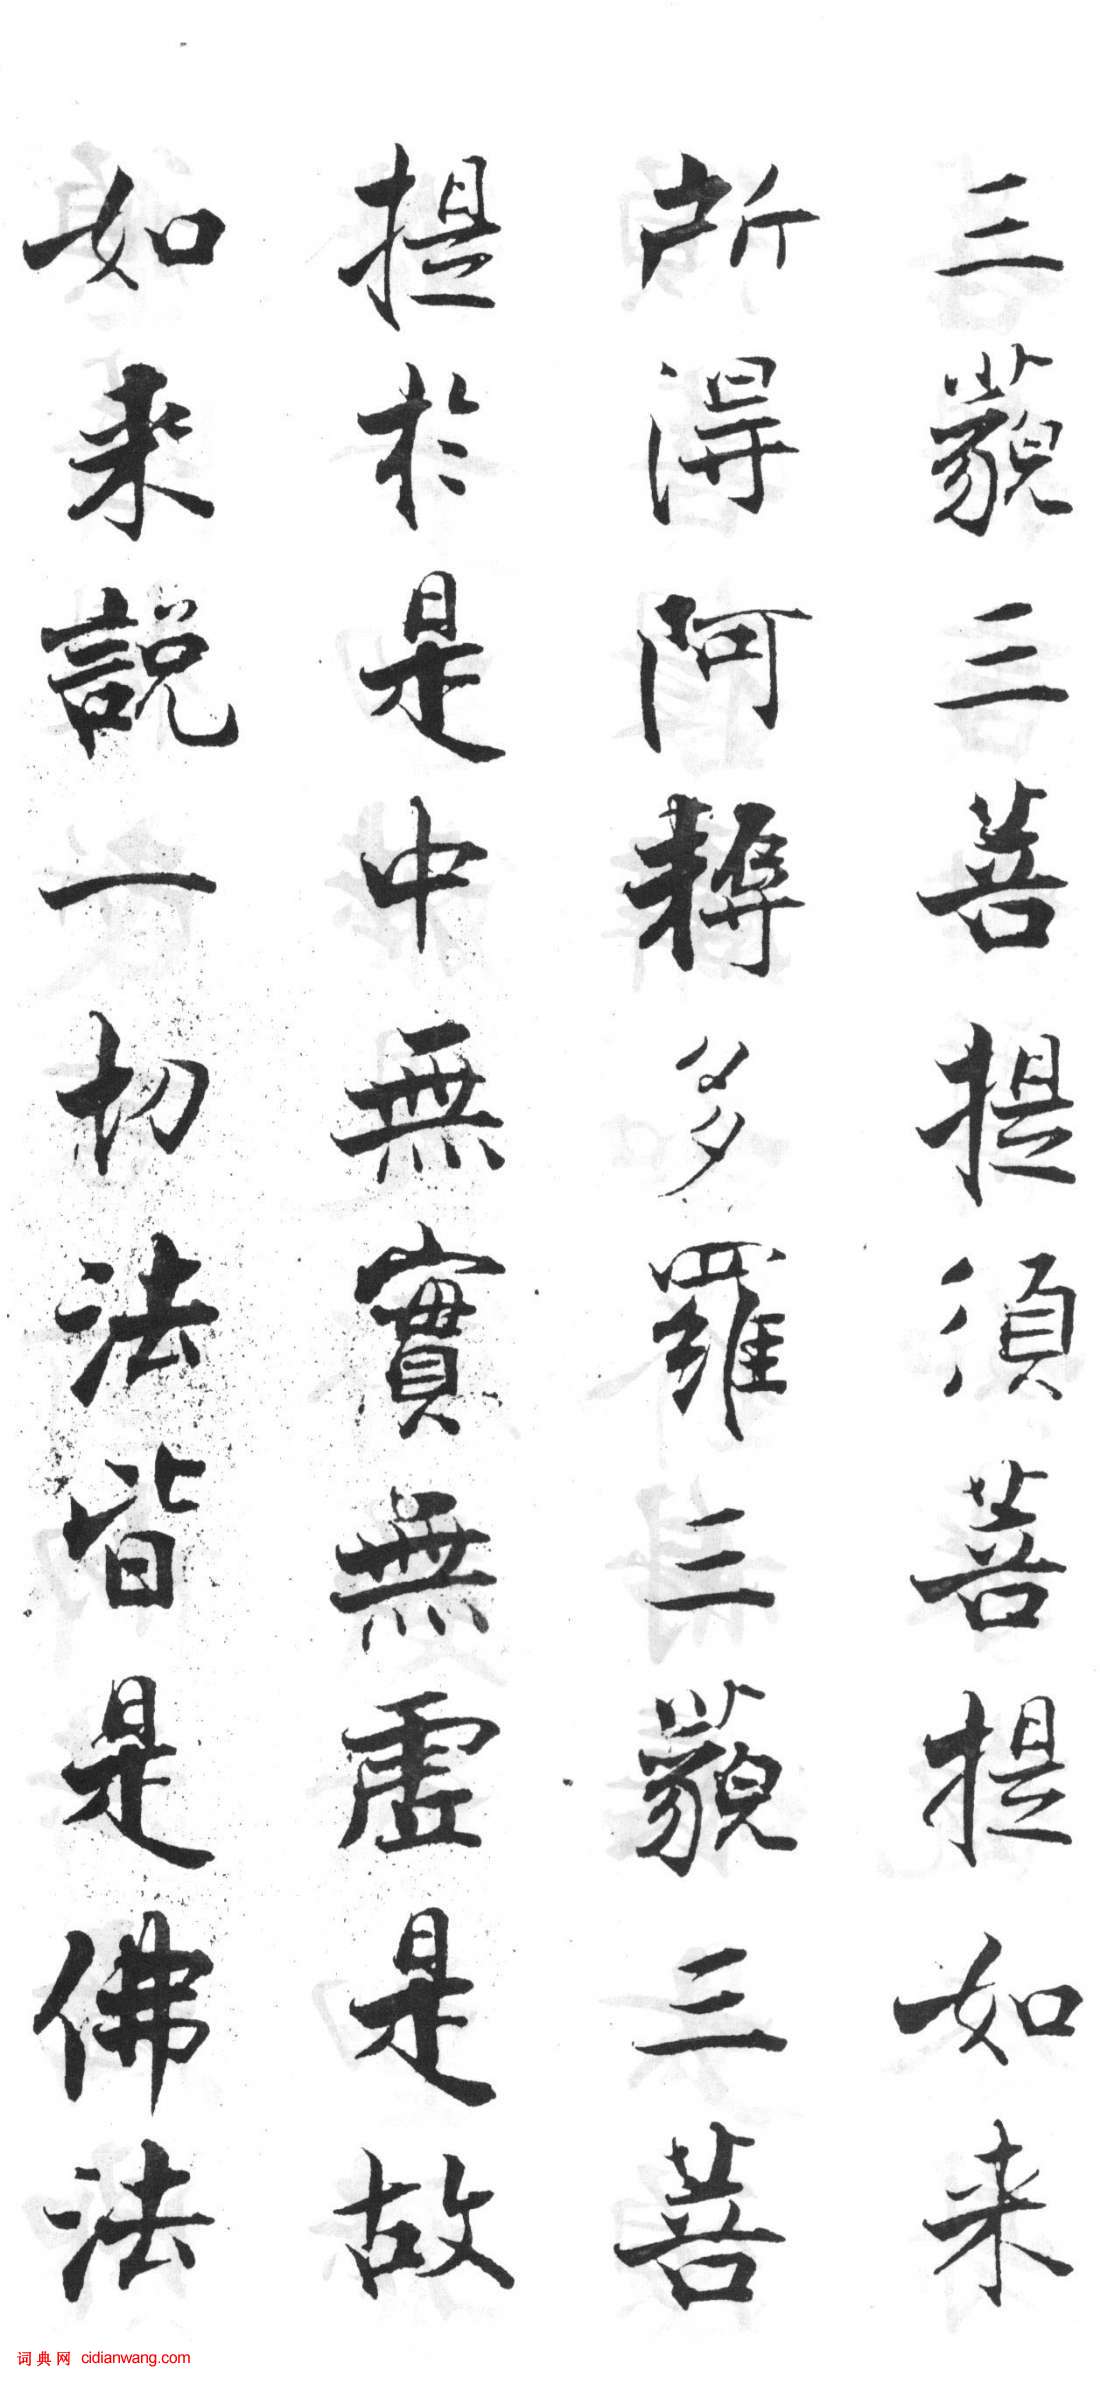 三藐三菩提須菩提如来
所得阿耨多羅三藐三菩
提於是中無實無虛是故
如来説一切法皆是佛法
词典网 cidianwang.com